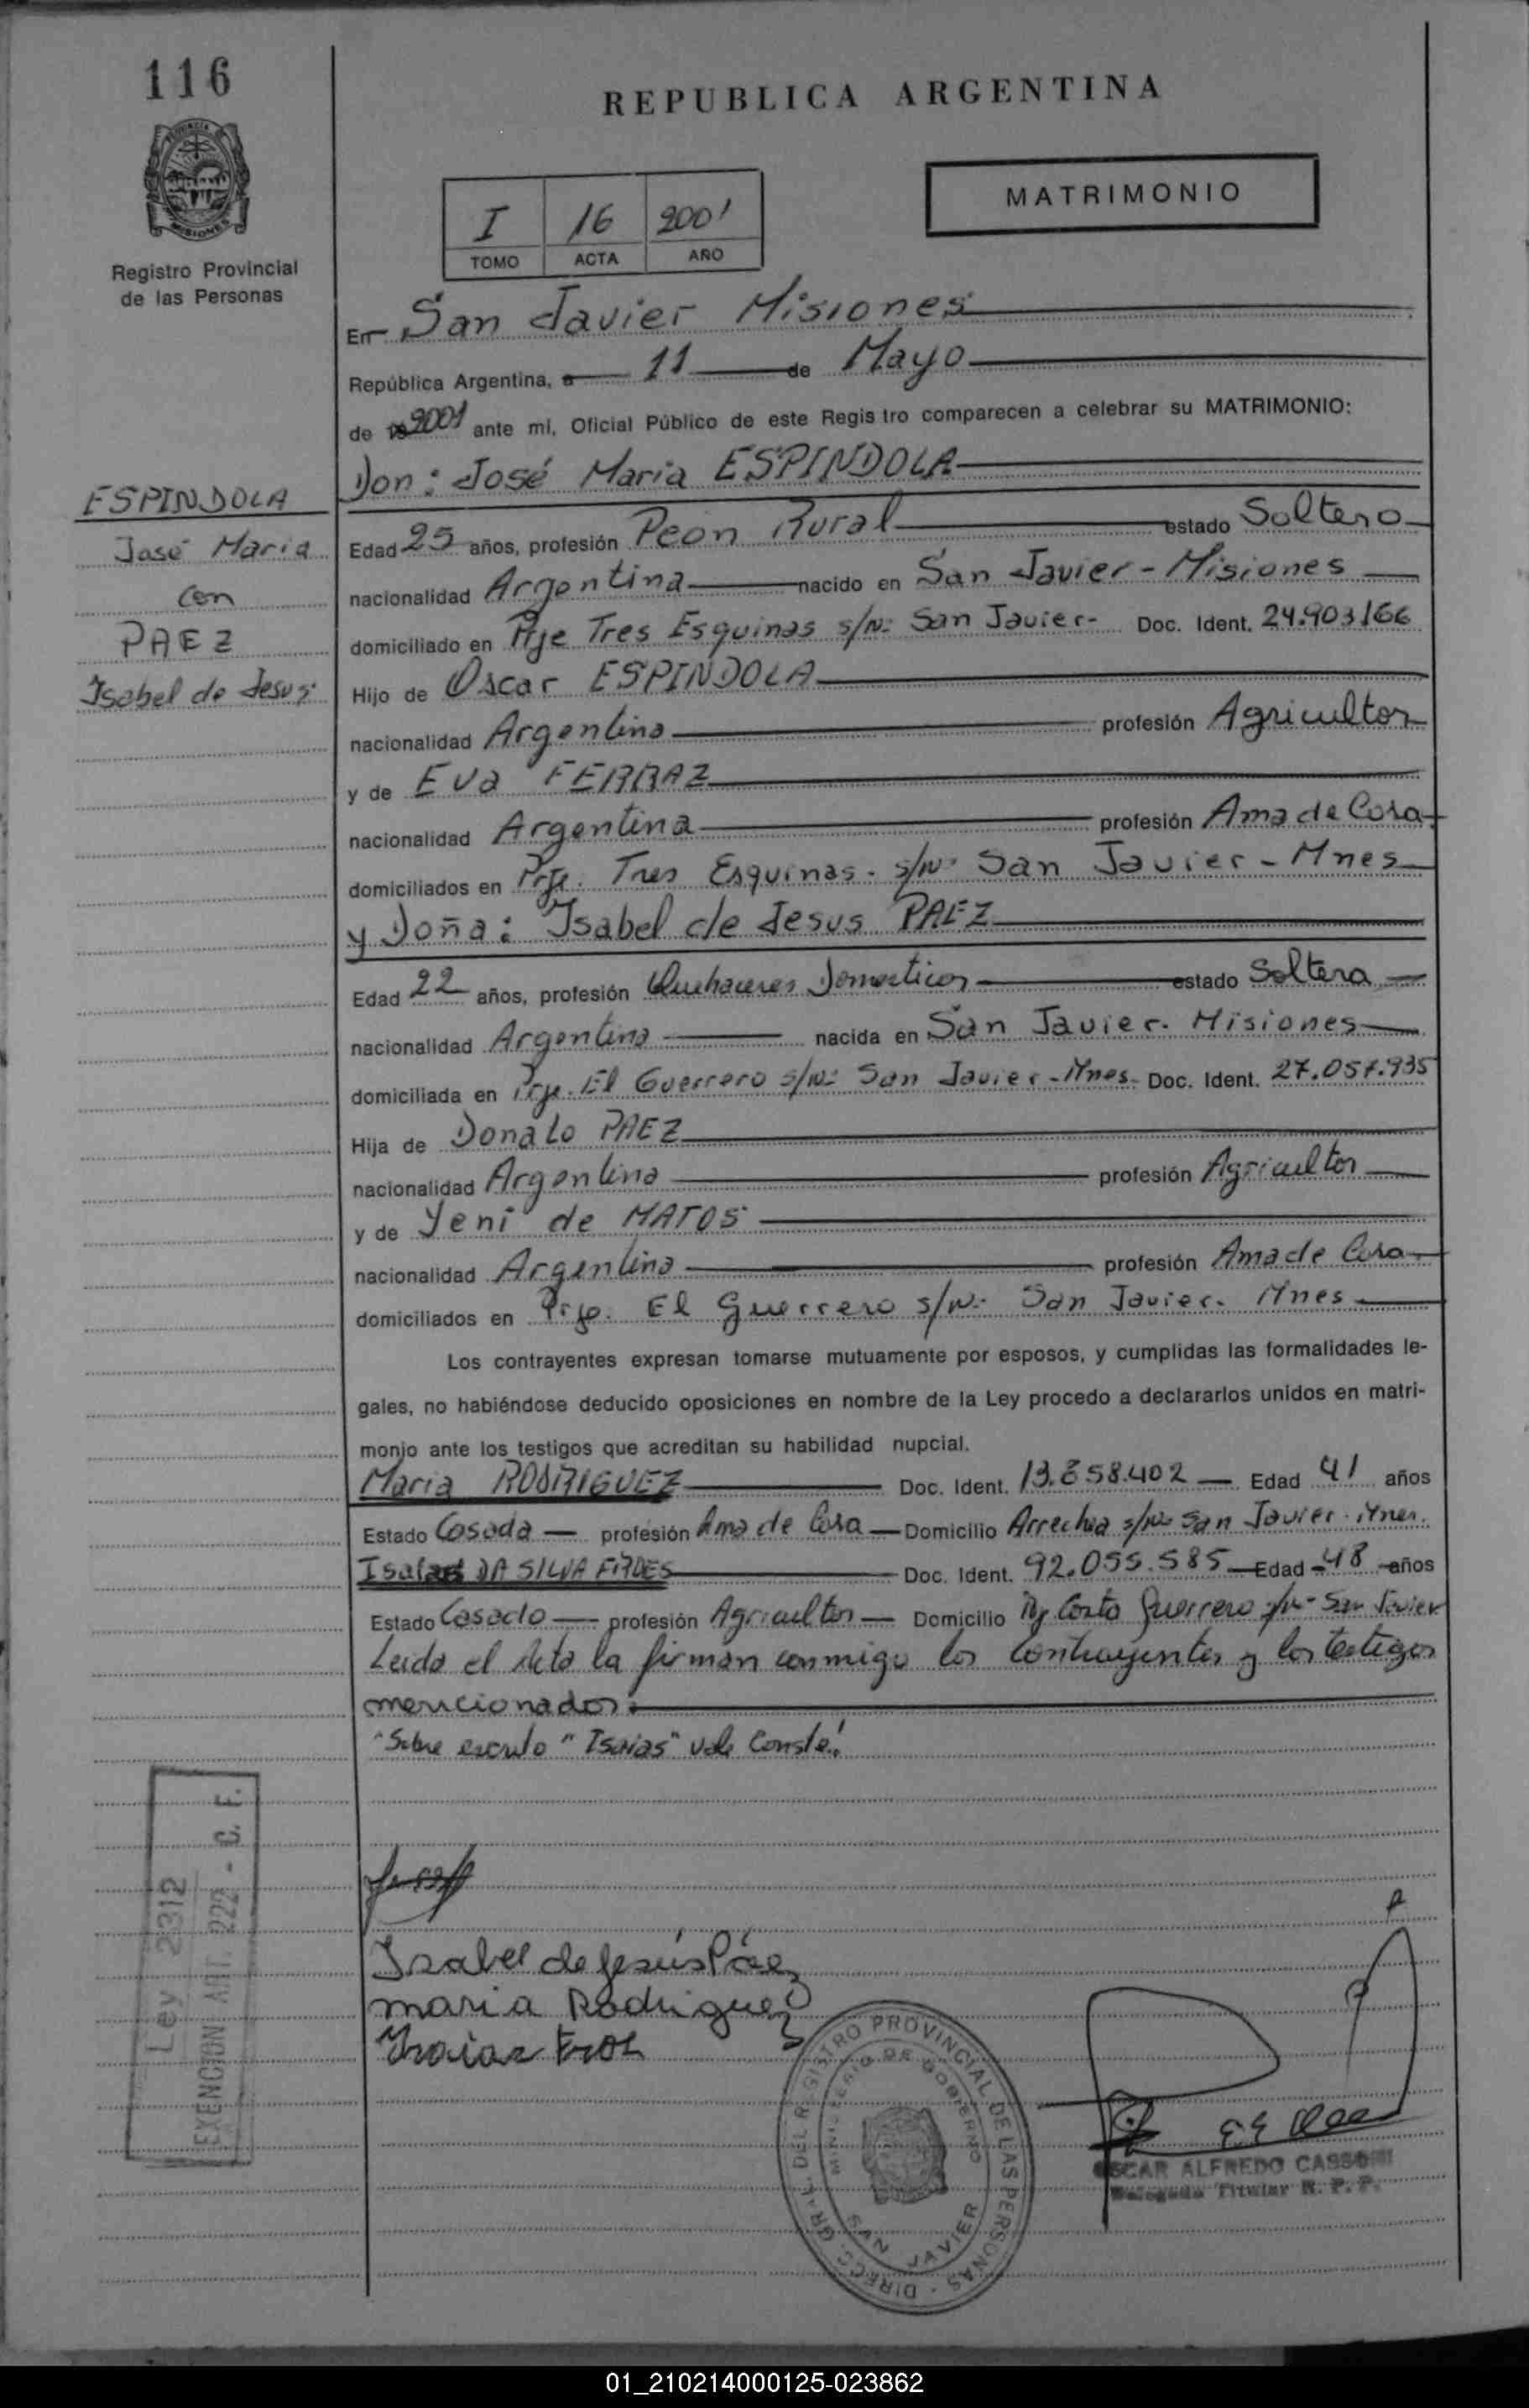 116
REPUBLICA ARGENTINA
PROVINCIA DE
MISIONES
Registro Provincial
de las Personas
I 16 2001
TOMO ACTA AÑO
MATRIMONIO
En San Javier Misiones
República Argentina, a 11 de Mayo
de 2001 ante mí, Oficial Público de este Registro comparecen a celebrar su MATRIMONIO:
Don: José Maria ESPINDOLA
ESPINDOLA
José Maria
con
PAEZ
Isabel de Jesus
Edad 25 años, profesión Peon Rural estado Soltero
nacionalidad Argentina nacido en San Javier - Misiones
domiciliado en Pje Tres Esquinas s/N: San Javier- Doc. Ident. 24.903166
Hijo de Oscar ESPINDOLA
nacionalidad Argentina profesión Agricultor
y de Eva FERRAZ
nacionalidad Argentina profesión Ama de Casa
domiciliados en Prje. Tres Esquinas. s/N: San Javier - Mnes
y Doña: Isabel de Jesus PAEZ
Edad 22 años, profesión Quehaceres Domesticos estado Soltera
nacionalidad Argentina nacida en San Javier. Misiones
domiciliada en Prje. El Guerrero s/N: San Javier - Mnes- Doc. Ident. 27.057.935
Hija de Donato PAEZ
nacionalidad Argentina profesión Agricultor
y de Yeni de MATOS
nacionalidad Argentina profesión Ama de Casa
domiciliados en Prje. El Guerrero s/N: San Javier. Mnes
Los contrayentes expresan tomarse mutuamente por esposos, y cumplidas las formalidades le-
gales, no habiéndose deducido oposiciones en nombre de la Ley procedo a declararlos unidos en matri-
monio ante los testigos que acreditan su habilidad nupcial.
Maria RODRIGUEZ Doc. Ident. 13.858.402 Edad 41 años
Estado Casada profesión Ama de Casa Domicilio Arrechea s/N: San Javier. Mnes.
Isaias DA SILVA Doc. Ident. 92.055.585 Edad 48 años
Estado Casado profesión Agricultor Domicilio Guerrero s/N- San Javier
Leida el Acta la firman conmigo los contrayentes y los testigos
mencionados.
"Sobre escrito "Isaias" vale Conste!
Ley 2312
EXENCION ART. 222 - C. F.
Isabel de Jesús Páez
maria Rodriguez
DIRECC. GRAL. DEL REGISTRO PROVINCIAL DE LAS PERSONAS
MINISTERIO DE GOBIERNO
SAN JAVIER
OSCAR ALFREDO CASSONI
Delegado Titular R. P. P.
01_210214000125-023862